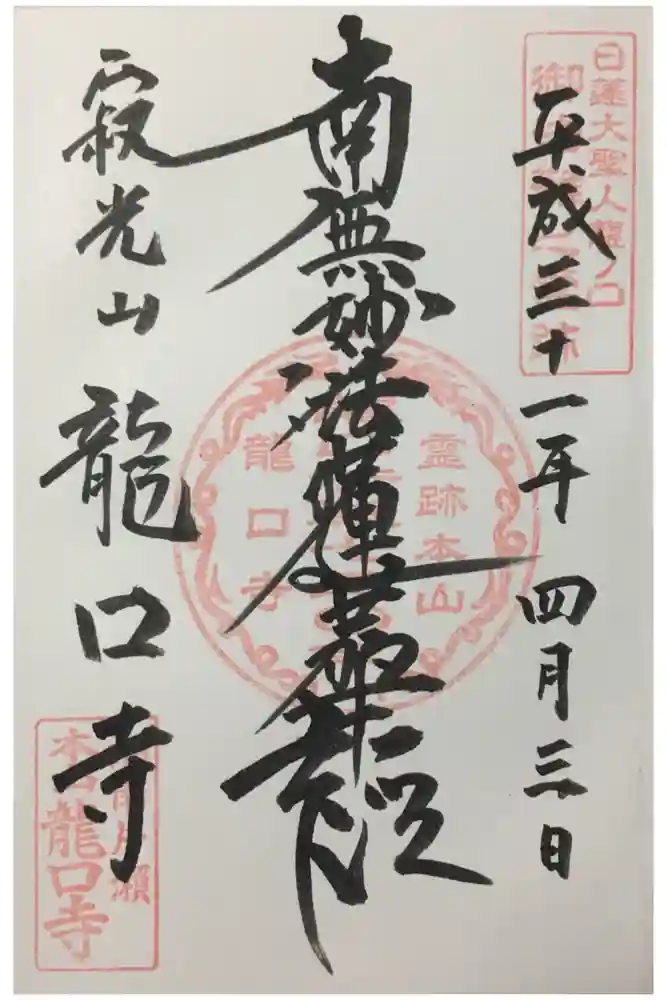 平成三十一年四月三日
南無妙法蓮華経
寂光山
龍口寺
日蓮大聖人龍ノ口
御
跡
霊跡本山
龍口寺
片瀬
本山
龍口寺